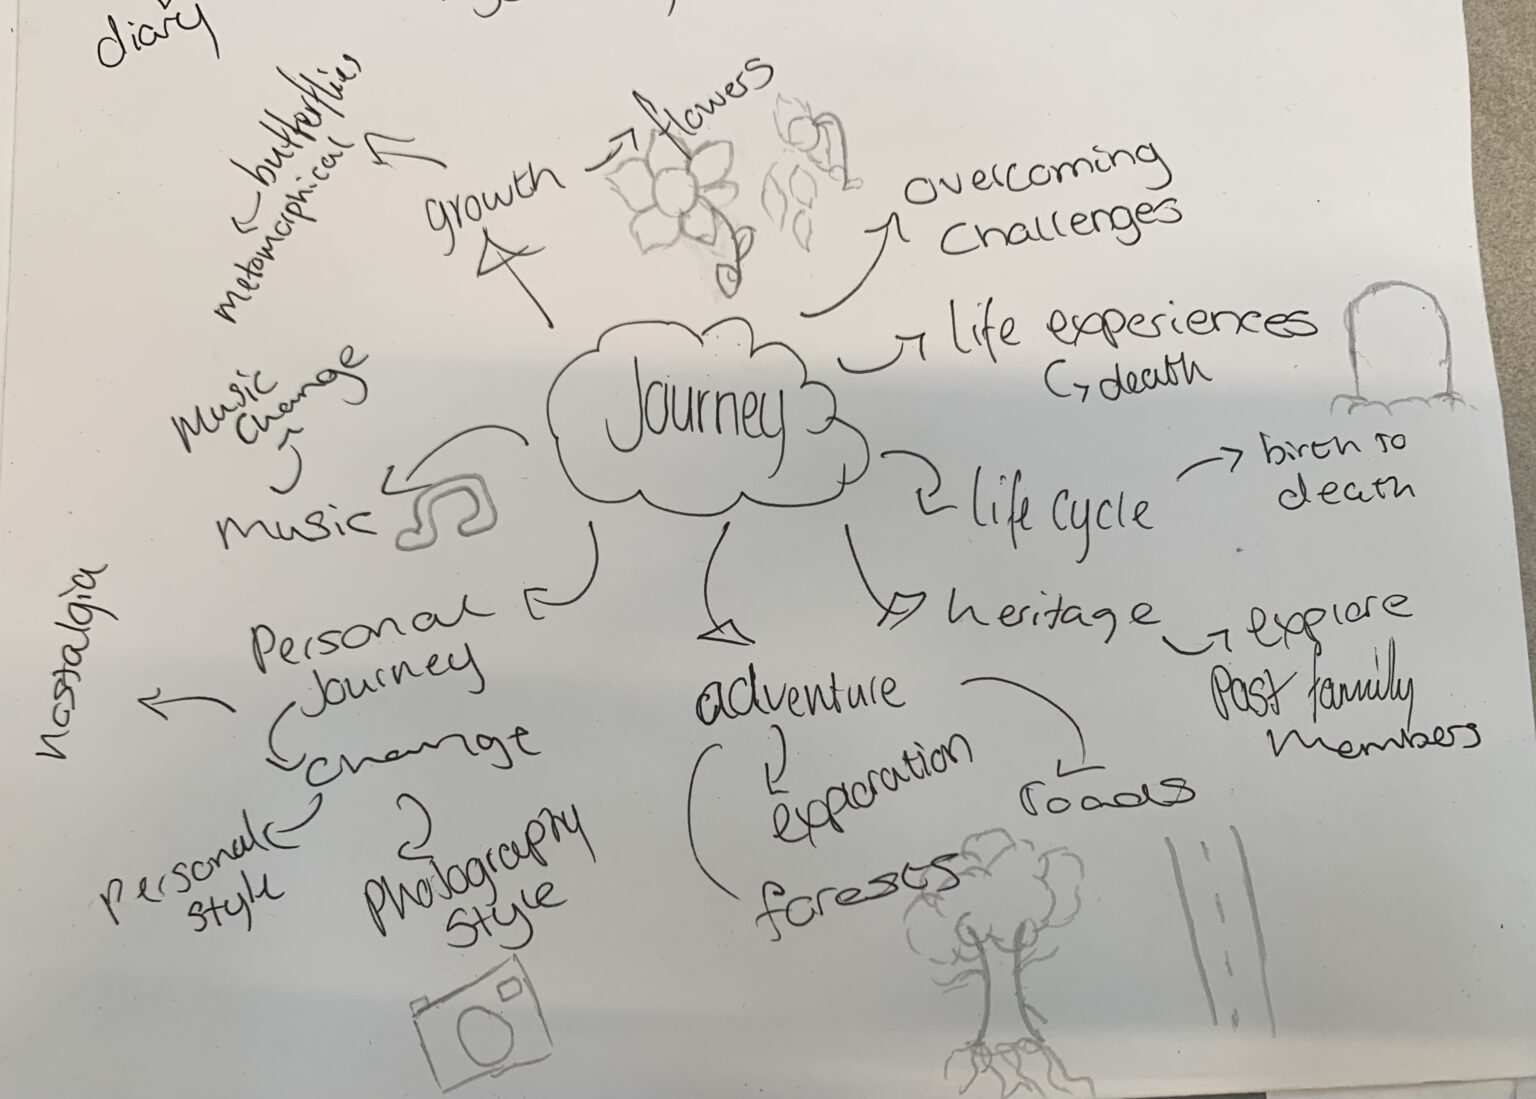 diary
butterflies
metomorphical
growth
flowers
overcoming
challenges
life experiences
death
Journey
Music
change
music
life cycle
birth to
death
heritage
explore
past family
members
Personal
Journey
nostalgia
change
personal
style
Photography
style
adventure
exploration
roads
forests